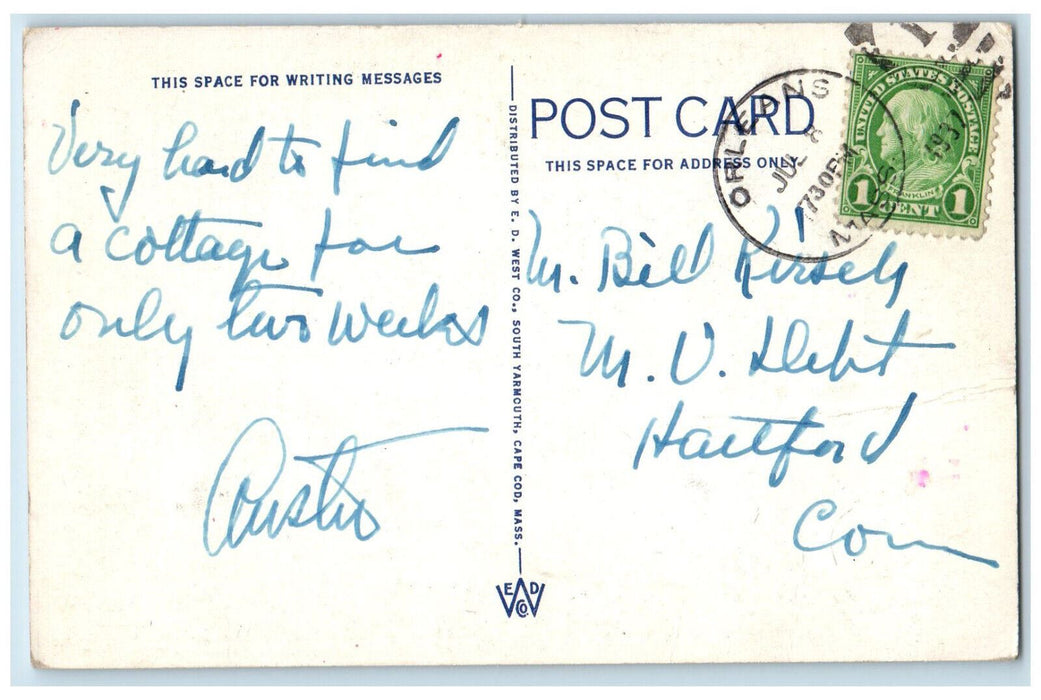 THIS SPACE FOR WRITING MESSAGES
Very hard to find
a cottage for
only two weeks
DISTRIBUTED BY E. D. WEST CO., SOUTH YARMOUTH, CAPE COD, MASS.
E D
W
CO.
POST CARD
THIS SPACE FOR ADDRESS ONLY.
ORLEANS
JUL 8
730PM
1931
MASS.
UNITED STATES POSTAGE
FRANKLIN
1 CENT 1
M. Bill Kirsch
M. V. Dept
Hartford
Conn